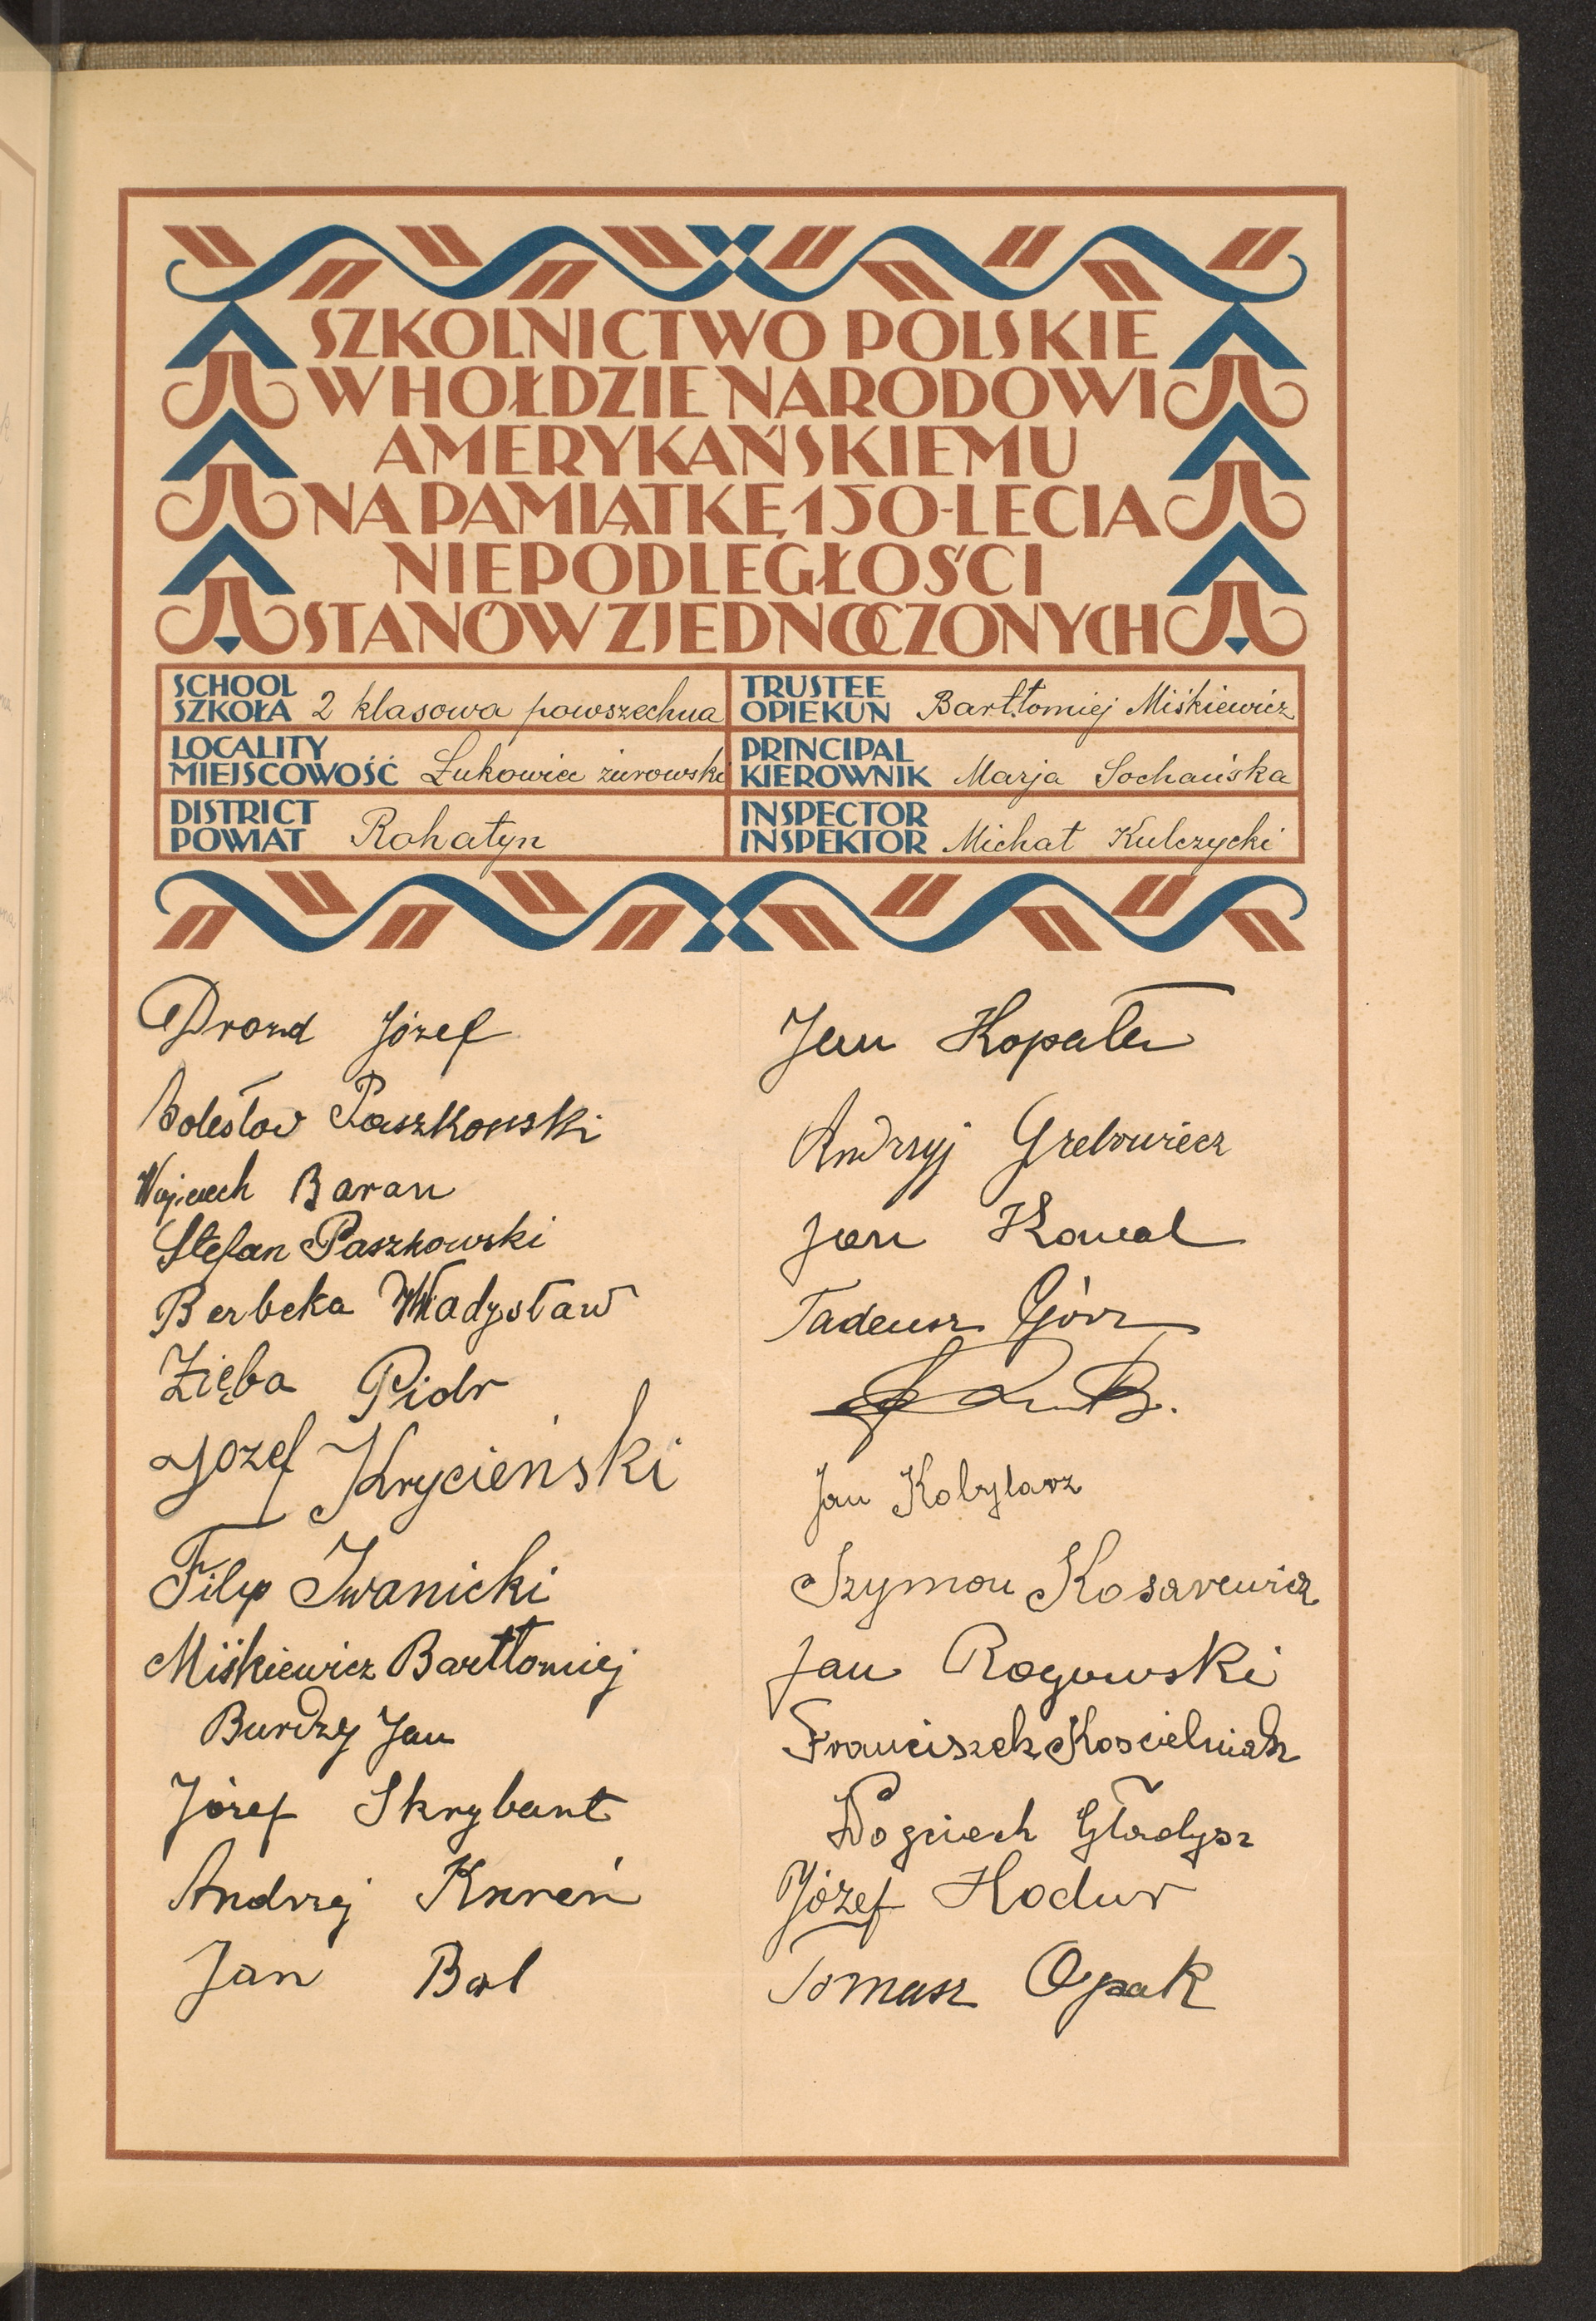 SZKOLNICTWO POLSKIE
W HOŁDZIE NARODOWI
AMERYKAŃSKIEMU
NA PAMIĄTKĘ 150-LECIA
NIEPODLEGŁOŚCI
STANÓW ZJEDNOCZONYCH
SCHOOL
SZKOŁA 2 klasowa powszechna
LOCALITY
MIEJSCOWOŚĆ Łukowiec żurowski
DISTRICT
POWIAT Rohatyn
TRUSTEE
OPIEKUN Bartłomiej Miśkiewicz
PRINCIPAL
KIEROWNIK Marja Sochańska
INSPECTOR
INSPEKTOR Michał Kulczycki
Drozd Józef
Bolesław Paszkowski
Wojciech Baran
Stefan Paszkowski
Berbeka Władysław
Zięba Piotr
Jozef Krycieński
Filip Iwanicki
Miśkiewicz Bartłomiej
Burdzy Jan
Józef Skrybant
Andrzej
Jan Bal
Jan
Andrzyj
Jan Kowal
Tadeusz Górz
Jan Kobylarz
Szymon Kosarewicz
Jan Rogowski
Franciszek Koscielniak
Wogciech Gładysz
Józef Hodur
Tomasz Opak